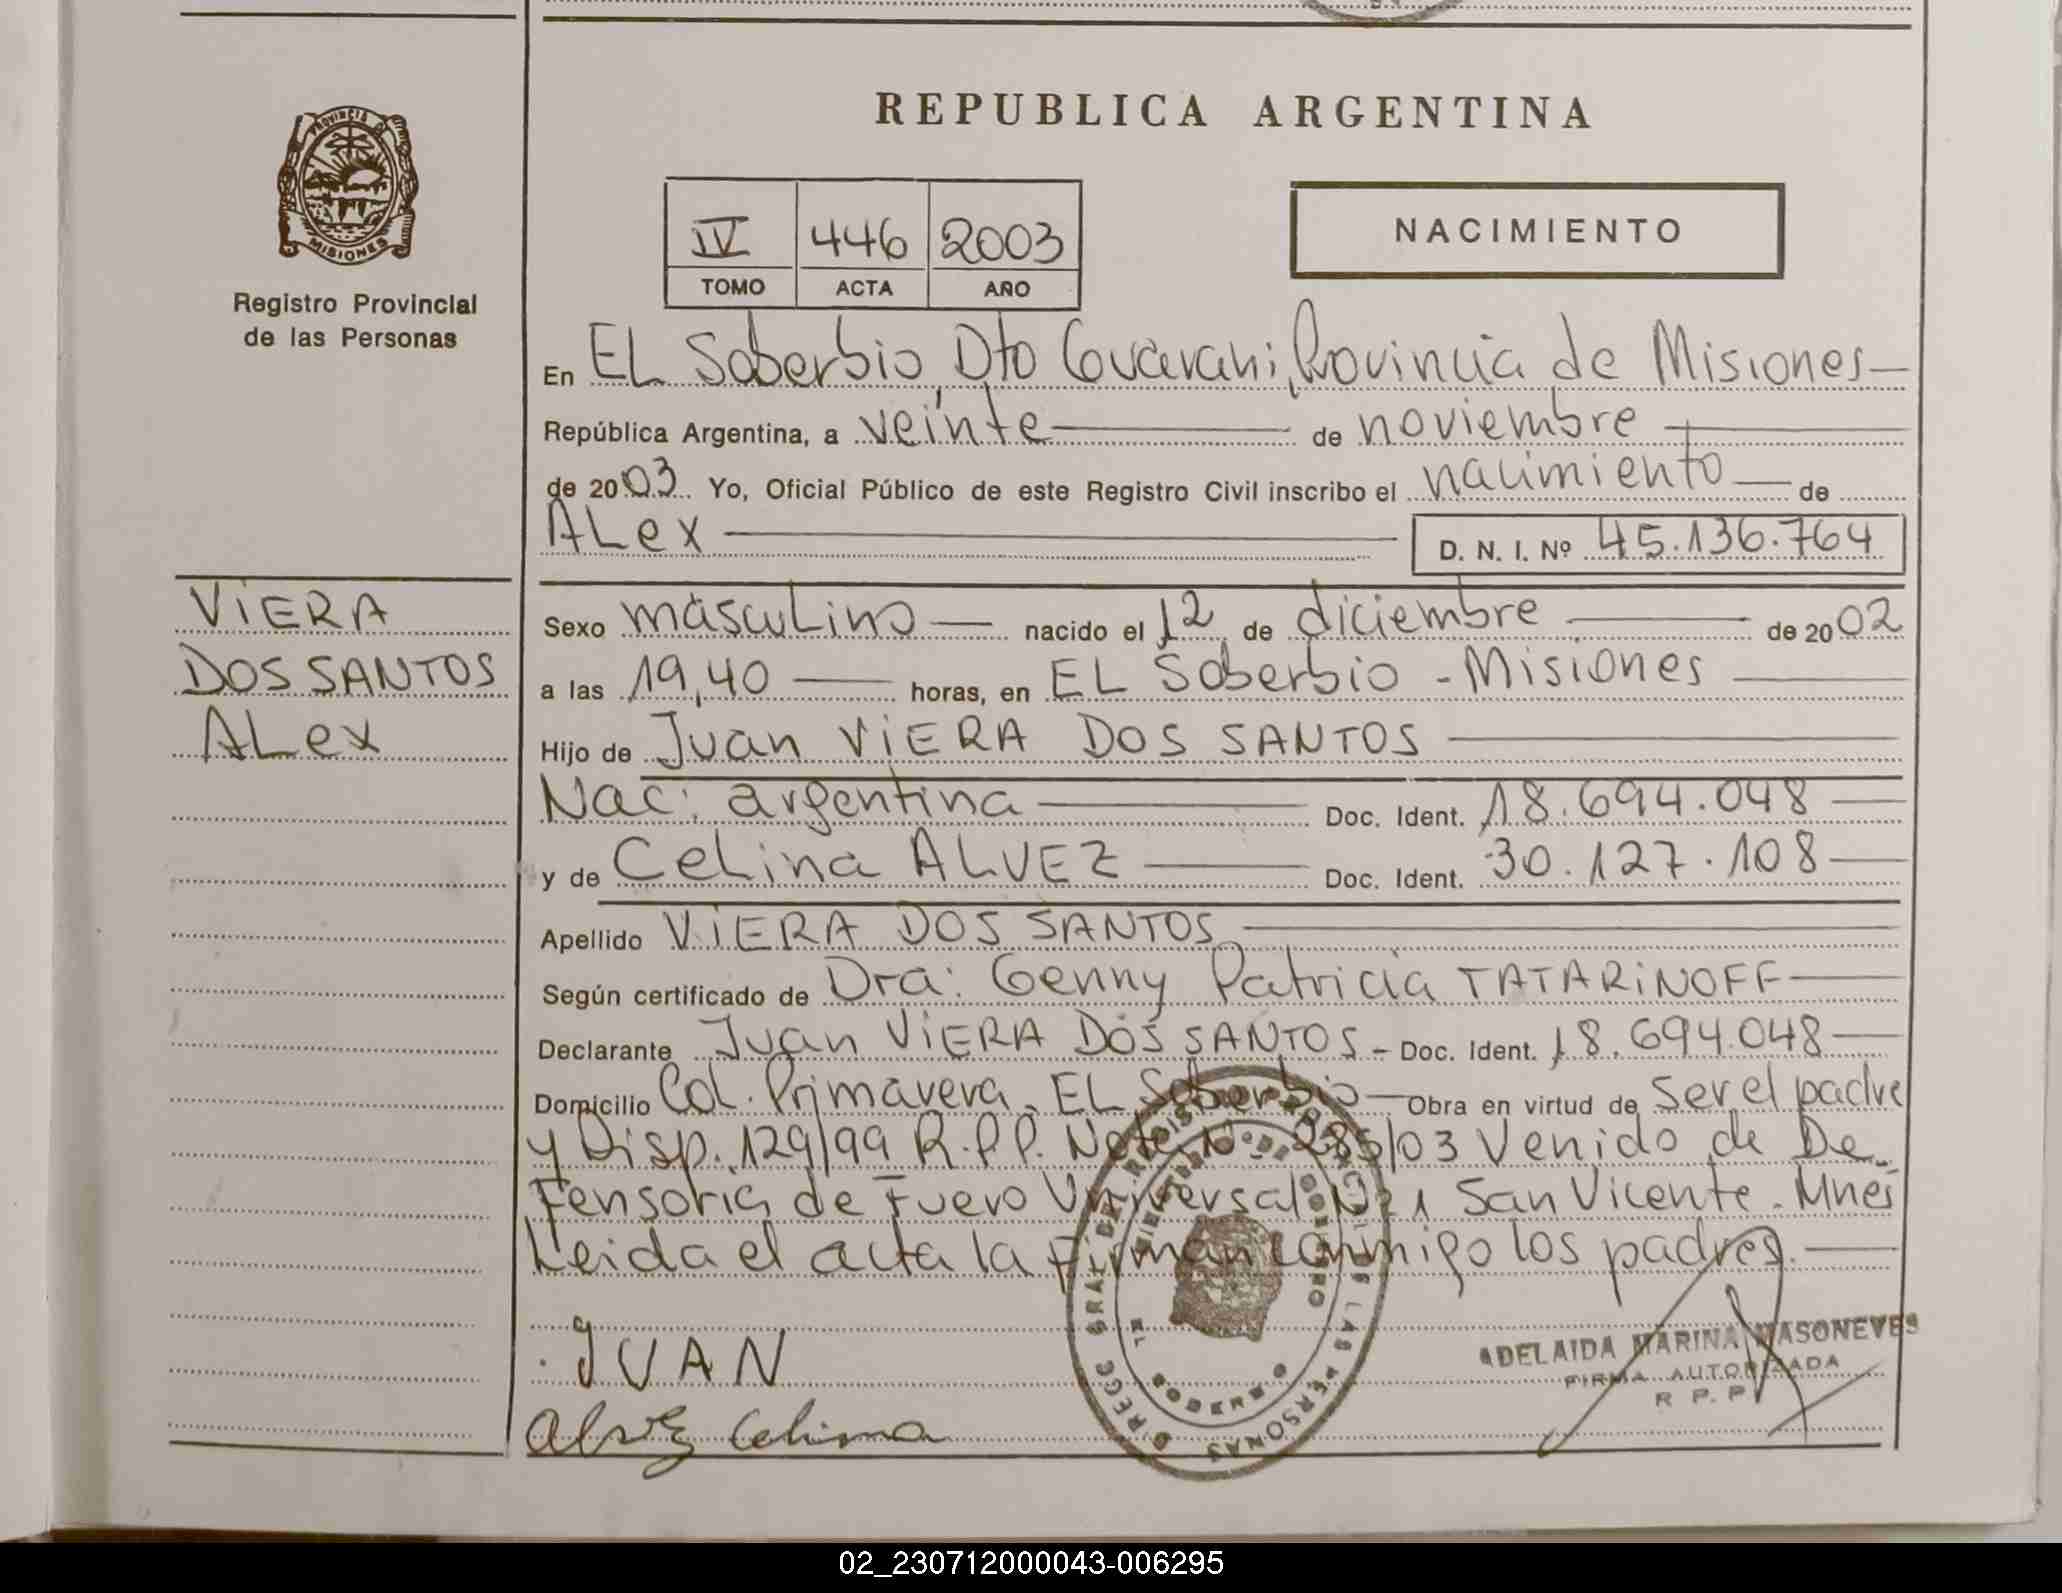 REPUBLICA ARGENTINA
PROVINCIA DE
MISIONES
Registro Provincial
de las Personas
IV 446 2003
TOMO ACTA AÑO
NACIMIENTO
En EL Soberbio, Dto Guarani, Provincia de Misiones
República Argentina, a veinte de noviembre
de 2003 Yo, Oficial Público de este Registro Civil inscribo el nacimiento de
ALex D. N. I. Nº 45.136.764
VIERA
DOS SANTOS
ALex
Sexo mascuLino nacido el 12 de diciembre de 2002
a las 19,40 horas, en EL Soberbio - Misiones
Hijo de Juan VIERA DOS SANTOS
Nac: argentina Doc. Ident. 18.694.048
y de CeLina ALVEZ Doc. Ident. 30.127.108
Apellido VIERA DOS SANTOS
Según certificado de Dra: Genny Patricia TATARINOFF
Declarante Juan VIERA DOS SANTOS - Doc. Ident. 18.694.048
Domicilio Col. Primavera, EL Soberbio Obra en virtud de ser el padre
y Disp. 129/99 R.P.P. Nota Nº 285/03 Venido de De
fensoria de Fuero Universal Nº 1 San Vicente - Mnes
Leida el acta la firman conmigo los padres.
JUAN
Alvez Celina
ADELAIDA MARINA MASONEVES
FIRMA AUTORIZADA
R. P. P.
02_230712000043-006295